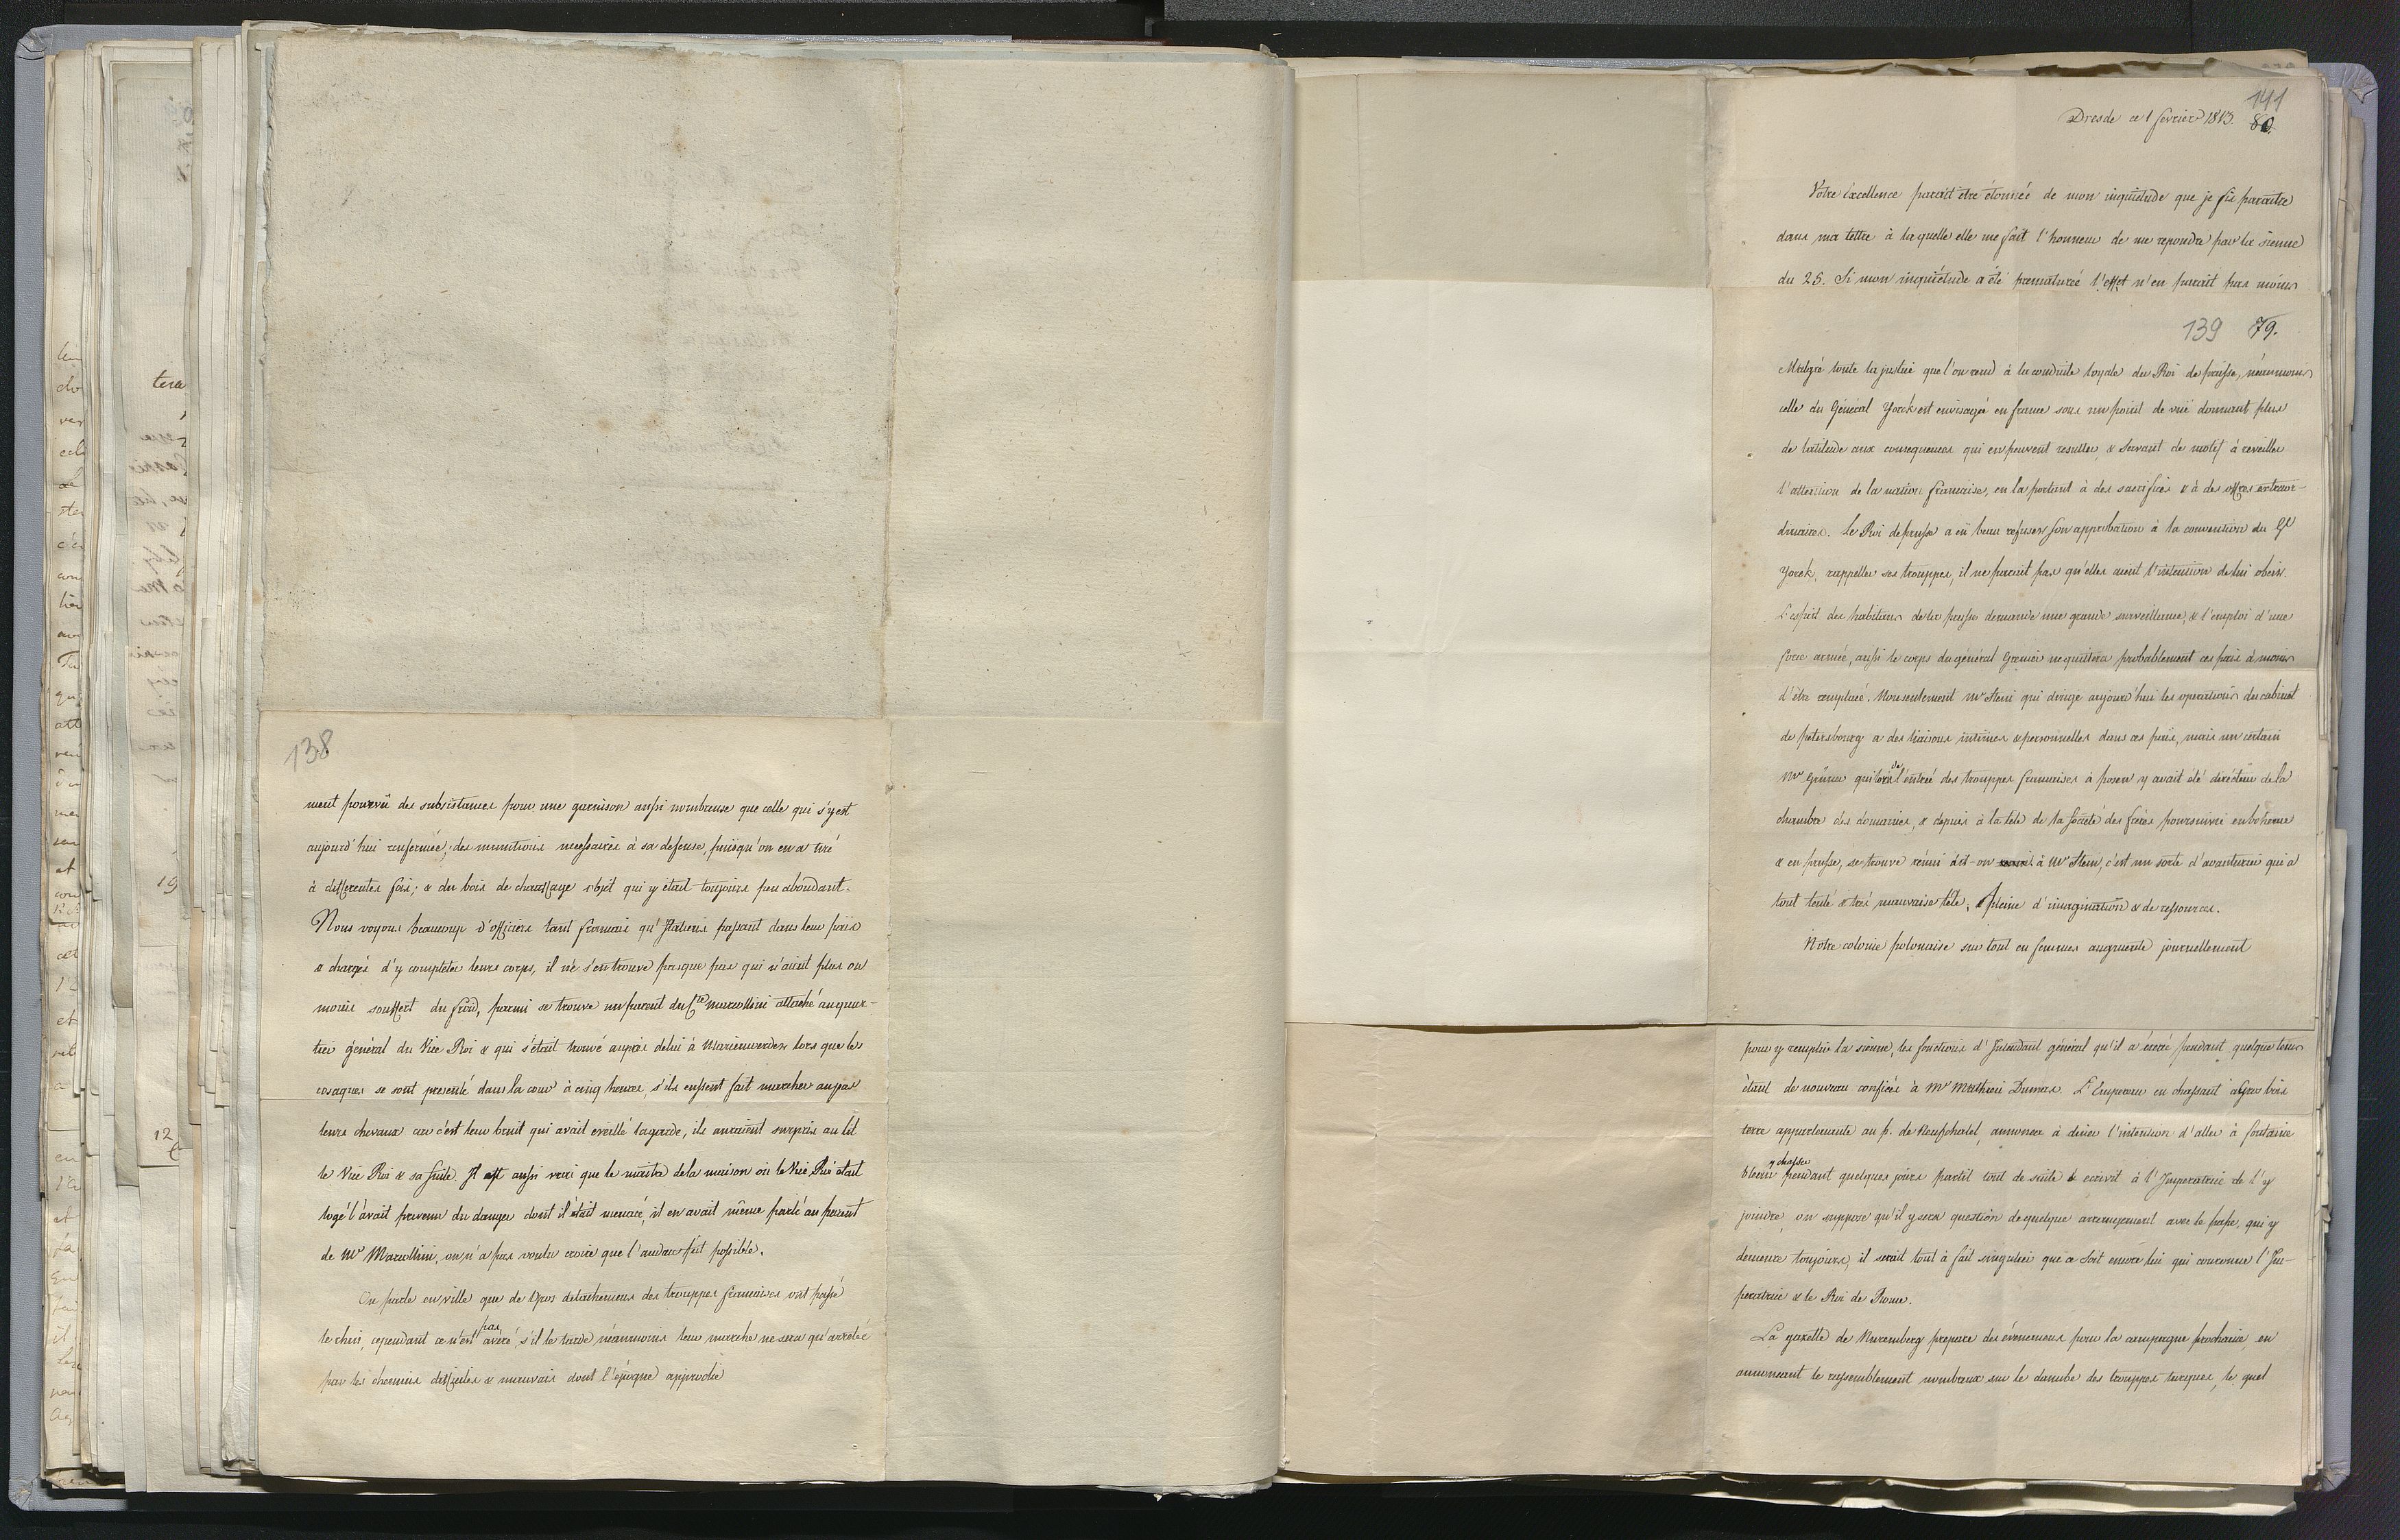 138
ment pourvû des subsistances pour une garnison aussi nombreuse que celle qui s'y est
aujourd'hui renfermée; des munitions necessaires à sa defense, puisqu'on en a tiré
à differentes fois; & du bois de chauffage objet qui y était toujours peu abondant.
Nous voyons beaucoup d'officiers tant francais qu'Italiens passant dans leur païs
& chargés d'y completter leurs corps, il ne s'en trouve presque pas qui n'aient plus ou
moins souffert du froid, parmi se trouve un parent du Cte Marcollini attaché au quar-
tier général du Vice Roi & qui s'était trouvé auprès de lui à Marienwerder lors que les
cosaques se sont presenté dans la cour à cinq heures, s'ils eussent fait marcher au pas
leurs chevaux car c'est leur bruit qui avait eveillé la garde, ils auraient surpris au lit
le Vice Roi & sa suite. Il est aussi vrai que le maitre de la maison où le Vice Roi était
logé l'avait prevenu du danger dont il était menacé, il en avait même parlé au parent
de Mr Marcollini, on n'a pas voulu croire que l'audace fût possible.
On parle en ville que de gros detachemens des trouppes francaises ont passé
le rhin, cependant ce n'est pas averé, s'il le tarde néanmoins leur marche ne sera qu'arretée
par les chemins difficiles & mauvais dont l'époque approche
141
Dresde ce 1 fevrier 1813. 80.
Votre Excellence parait etre étonnée de mon inquietude que je fis paraitre
dans ma lettre à laquelle elle me fait l'honneur de me repondre par la sienne
du 25. Si mon inquiétude a été prematurée l'effet n'en parait pas moins
139 79.
Malgré toute la justice que l'on rend à la conduite loyale du Roi de prusse, néanmoins
celle du Général Yorck est envisagée en france sous un point de vuë donnant plus
de latitude aux consequences qui en peuvent resulter, & servant de motif à reveiller
l'attention de la nation francaise, en la portant à des sacrifices & à des offres extraor-
dinaires. Le Roi de prusse a eu beau refuser son approbation à la convention du Gl
Yorck, rappeller ses trouppes, il ne parait pas qu'elles aient l'intention de lui obeir.
L'esprit des habitans de la prusse demande une grande surveillance, & l'emploi d'une
force armée, aussi le corps du général Grenier ne quittera probablement ces païs à moins
d'être remplacé. Non seulement Mr Stein qui dirige aujourd'hui les operations du cabinet
de petersbourg a des liaisons intimes & personnelles dans ces païs, mais un certain
Mr Grüner qui lors de l'entrée des trouppes francaises à posen y avait été directeur de la
chambre des domaines, & depuis à la tête de la société des frères poursuivie en bohême
& en prusse, se trouve réuni dit-on à Mr Stein, c'est un sorte d'avanturier qui a
tout tenté & très mauvaise tête, pleine d'imagination & de ressources.
Notre colonie polonaise sur tout en femmes augmente journellement
pour y remplir la sienne, les fonctions d'Intendant général qu'il a exercé pendant quelque tems
étant de nouveau confiées à Mr Mathieu Dumas. L'Empereur en chassant à Gros bois
terre appartenante au p. de Neufchatel, annonca à diner l'intention d'aller à fontaine
bleau y chasser pendant quelques jours partit tout de suite & ecrivit à l'Imperatrice de l'y
joindre, on suppose qu'il y sera question de quelque arrangement avec le pape, qui y
demeure toujours, il serait tout à fait singulier que ce soit encore lui qui couronne l'Im-
peratrice & le Roi de Rome.
La gazette de Nuremberg prepare des événemens pour la campagne prochaine, en
annoncant le rassemblement nombreux sur le danube des trouppes turques, le quel